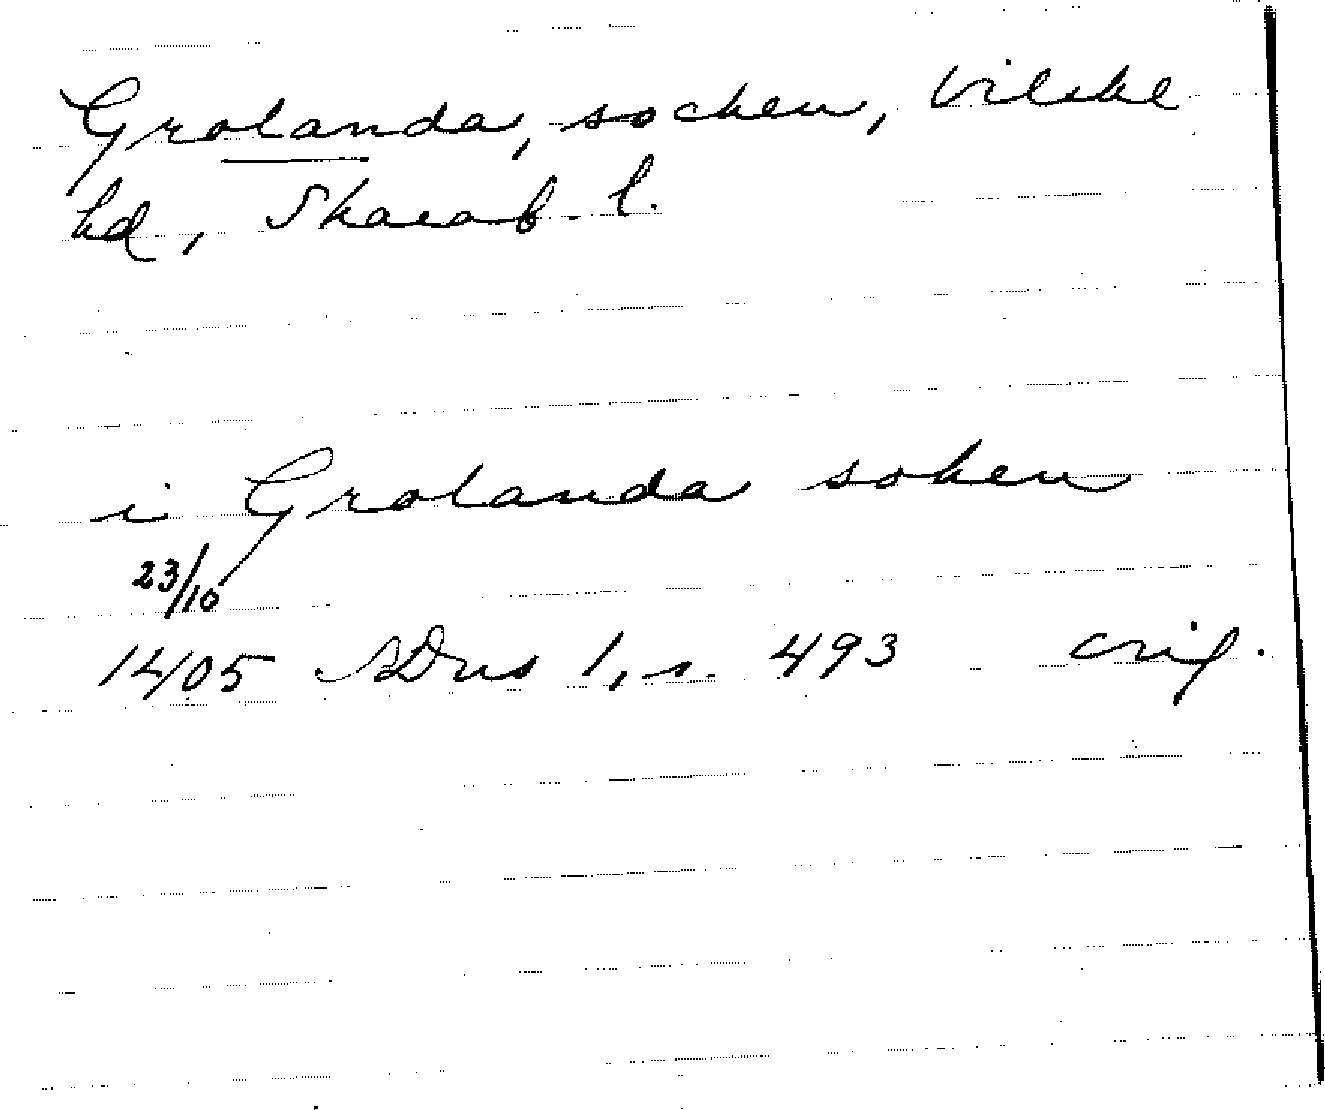 Grolanda, socken, Vilske
hd, Skarab. l.
i Grolanda soken
23/10
1405 SDns 1, s. 493 orig.